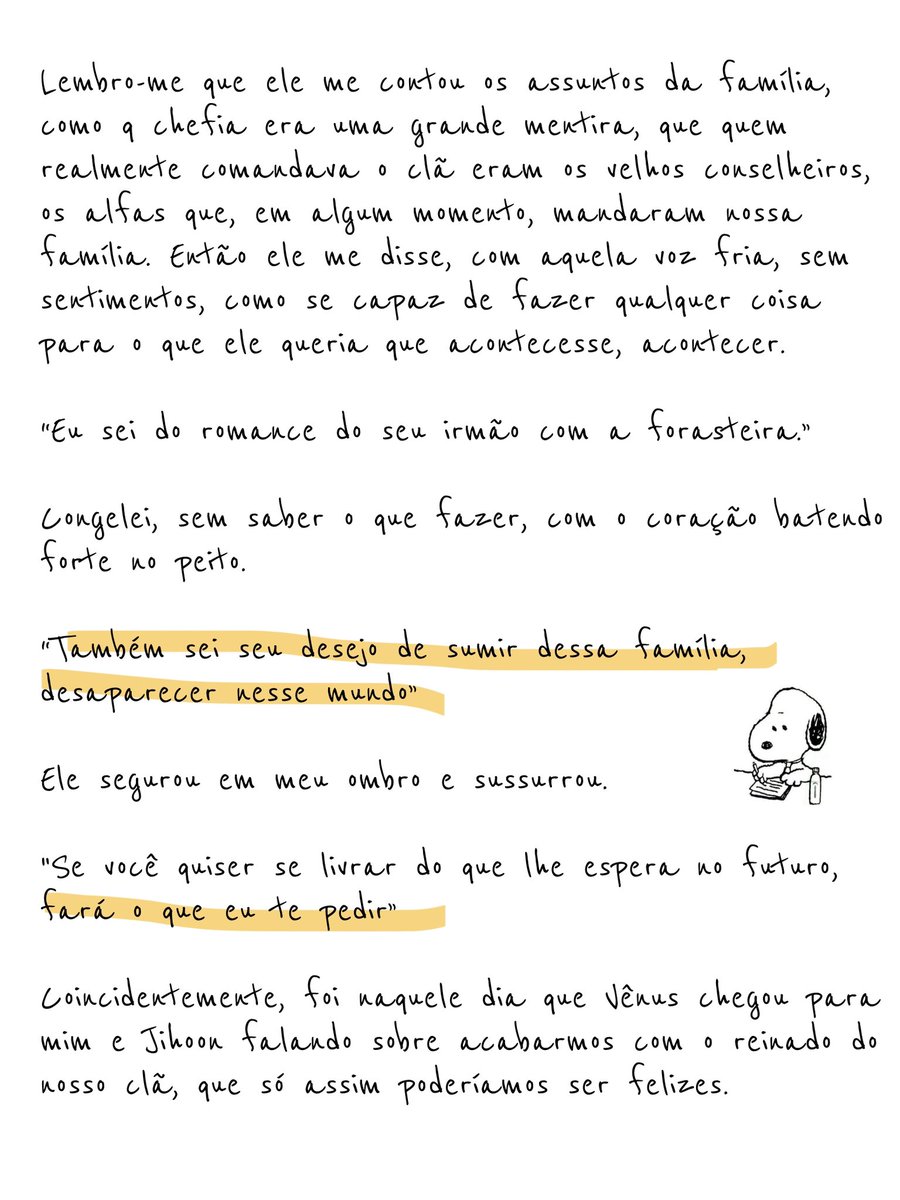 Lembro-me que ele me contou os assuntos da família,
como q chefia era uma grande mentira, que quem
realmente comandava o clã eram os velhos conselheiros,
os alfas que, em algum momento, mandaram nossa
família. Então ele me disse, com aquela voz fria, sem
sentimentos, como se capaz de fazer qualquer coisa
para o que ele queria que acontecesse, acontecer.
"Eu sei do romance do seu irmão com a forasteira."
Congelei, sem saber o que fazer, com o coração batendo
forte no peito.
"Também sei seu desejo de sumir dessa família,
desaparecer nesse mundo"
Ele segurou em meu ombro e sussurrou.
"Se você quiser se livrar do que lhe espera no futuro,
fará o que eu te pedir"
Coincidentemente, foi naquele dia que Vênus chegou para
mim e Jihoon falando sobre acabarmos com o reinado do
nosso clã, que só assim poderíamos ser felizes.